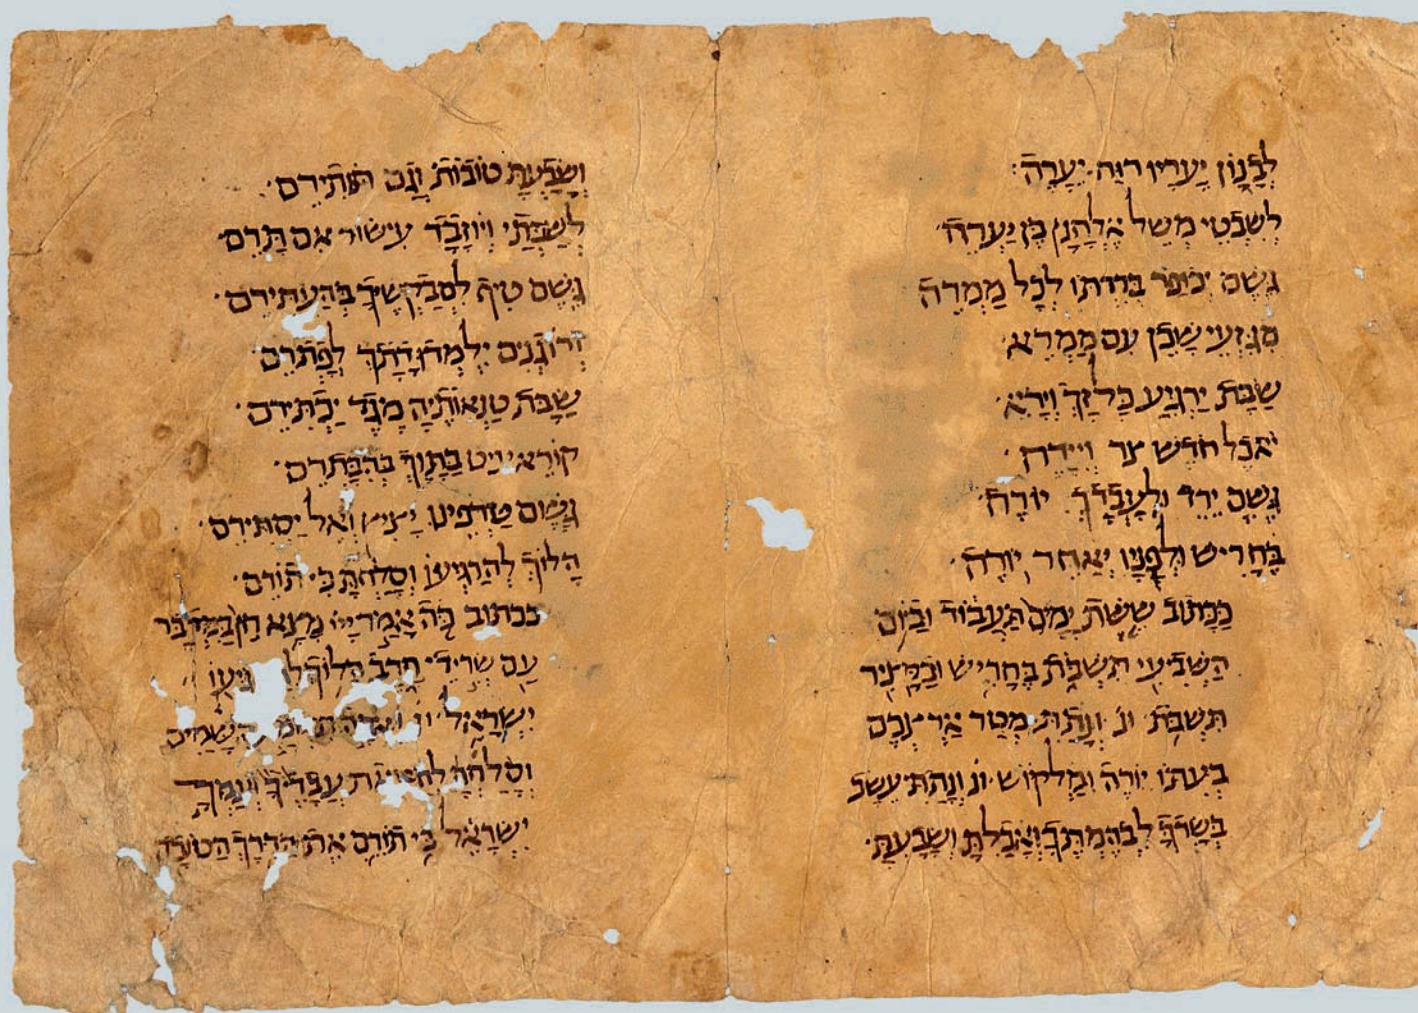 לבנון יעריו רוה יערה
לשבטי משל אלחנן בן יערה
גשם יכופר ברדתו לכל ממרה
מגזעי שכן עם ממרא
שבת ירגיע כל זך וירא
יאכל חדש צר
גשם ירד ולעבדך יורה
בחריש ולפניו יאחר יורה
ככתוב ששת ימים תעבוד וביום
השביעי תשבת בחריש ובקציר
תשבת ונ ונתתי מטר ארצכם
בעתו יורה ומלקוש ונ ונתתי עשב
בשדך לבהמתך ואכלת ושבעת
ושבעת טובות וגם תותירם
לשבתי ויוזבד עישור אם תרם
גשם טיף למבקשיך בהעתירם
ורוגנים ילמדו דתך לפתרם
שבת טנאותיה מגד יכתירם
קוראי בתוך בהבתרם
גשום טרפינו יציץ ואל יסתירם
הלוך להרגיעו וסלחת כי תורם
ככתוב כה אמר ייי מצא חן במדבר
עם שרידי חרב הלוך להרגיעו
ישראל ונ ואתה תשמע השמים
וסלחת לחטאת עבדיך ועמך
ישראל כי תורם את הדרך הטובה